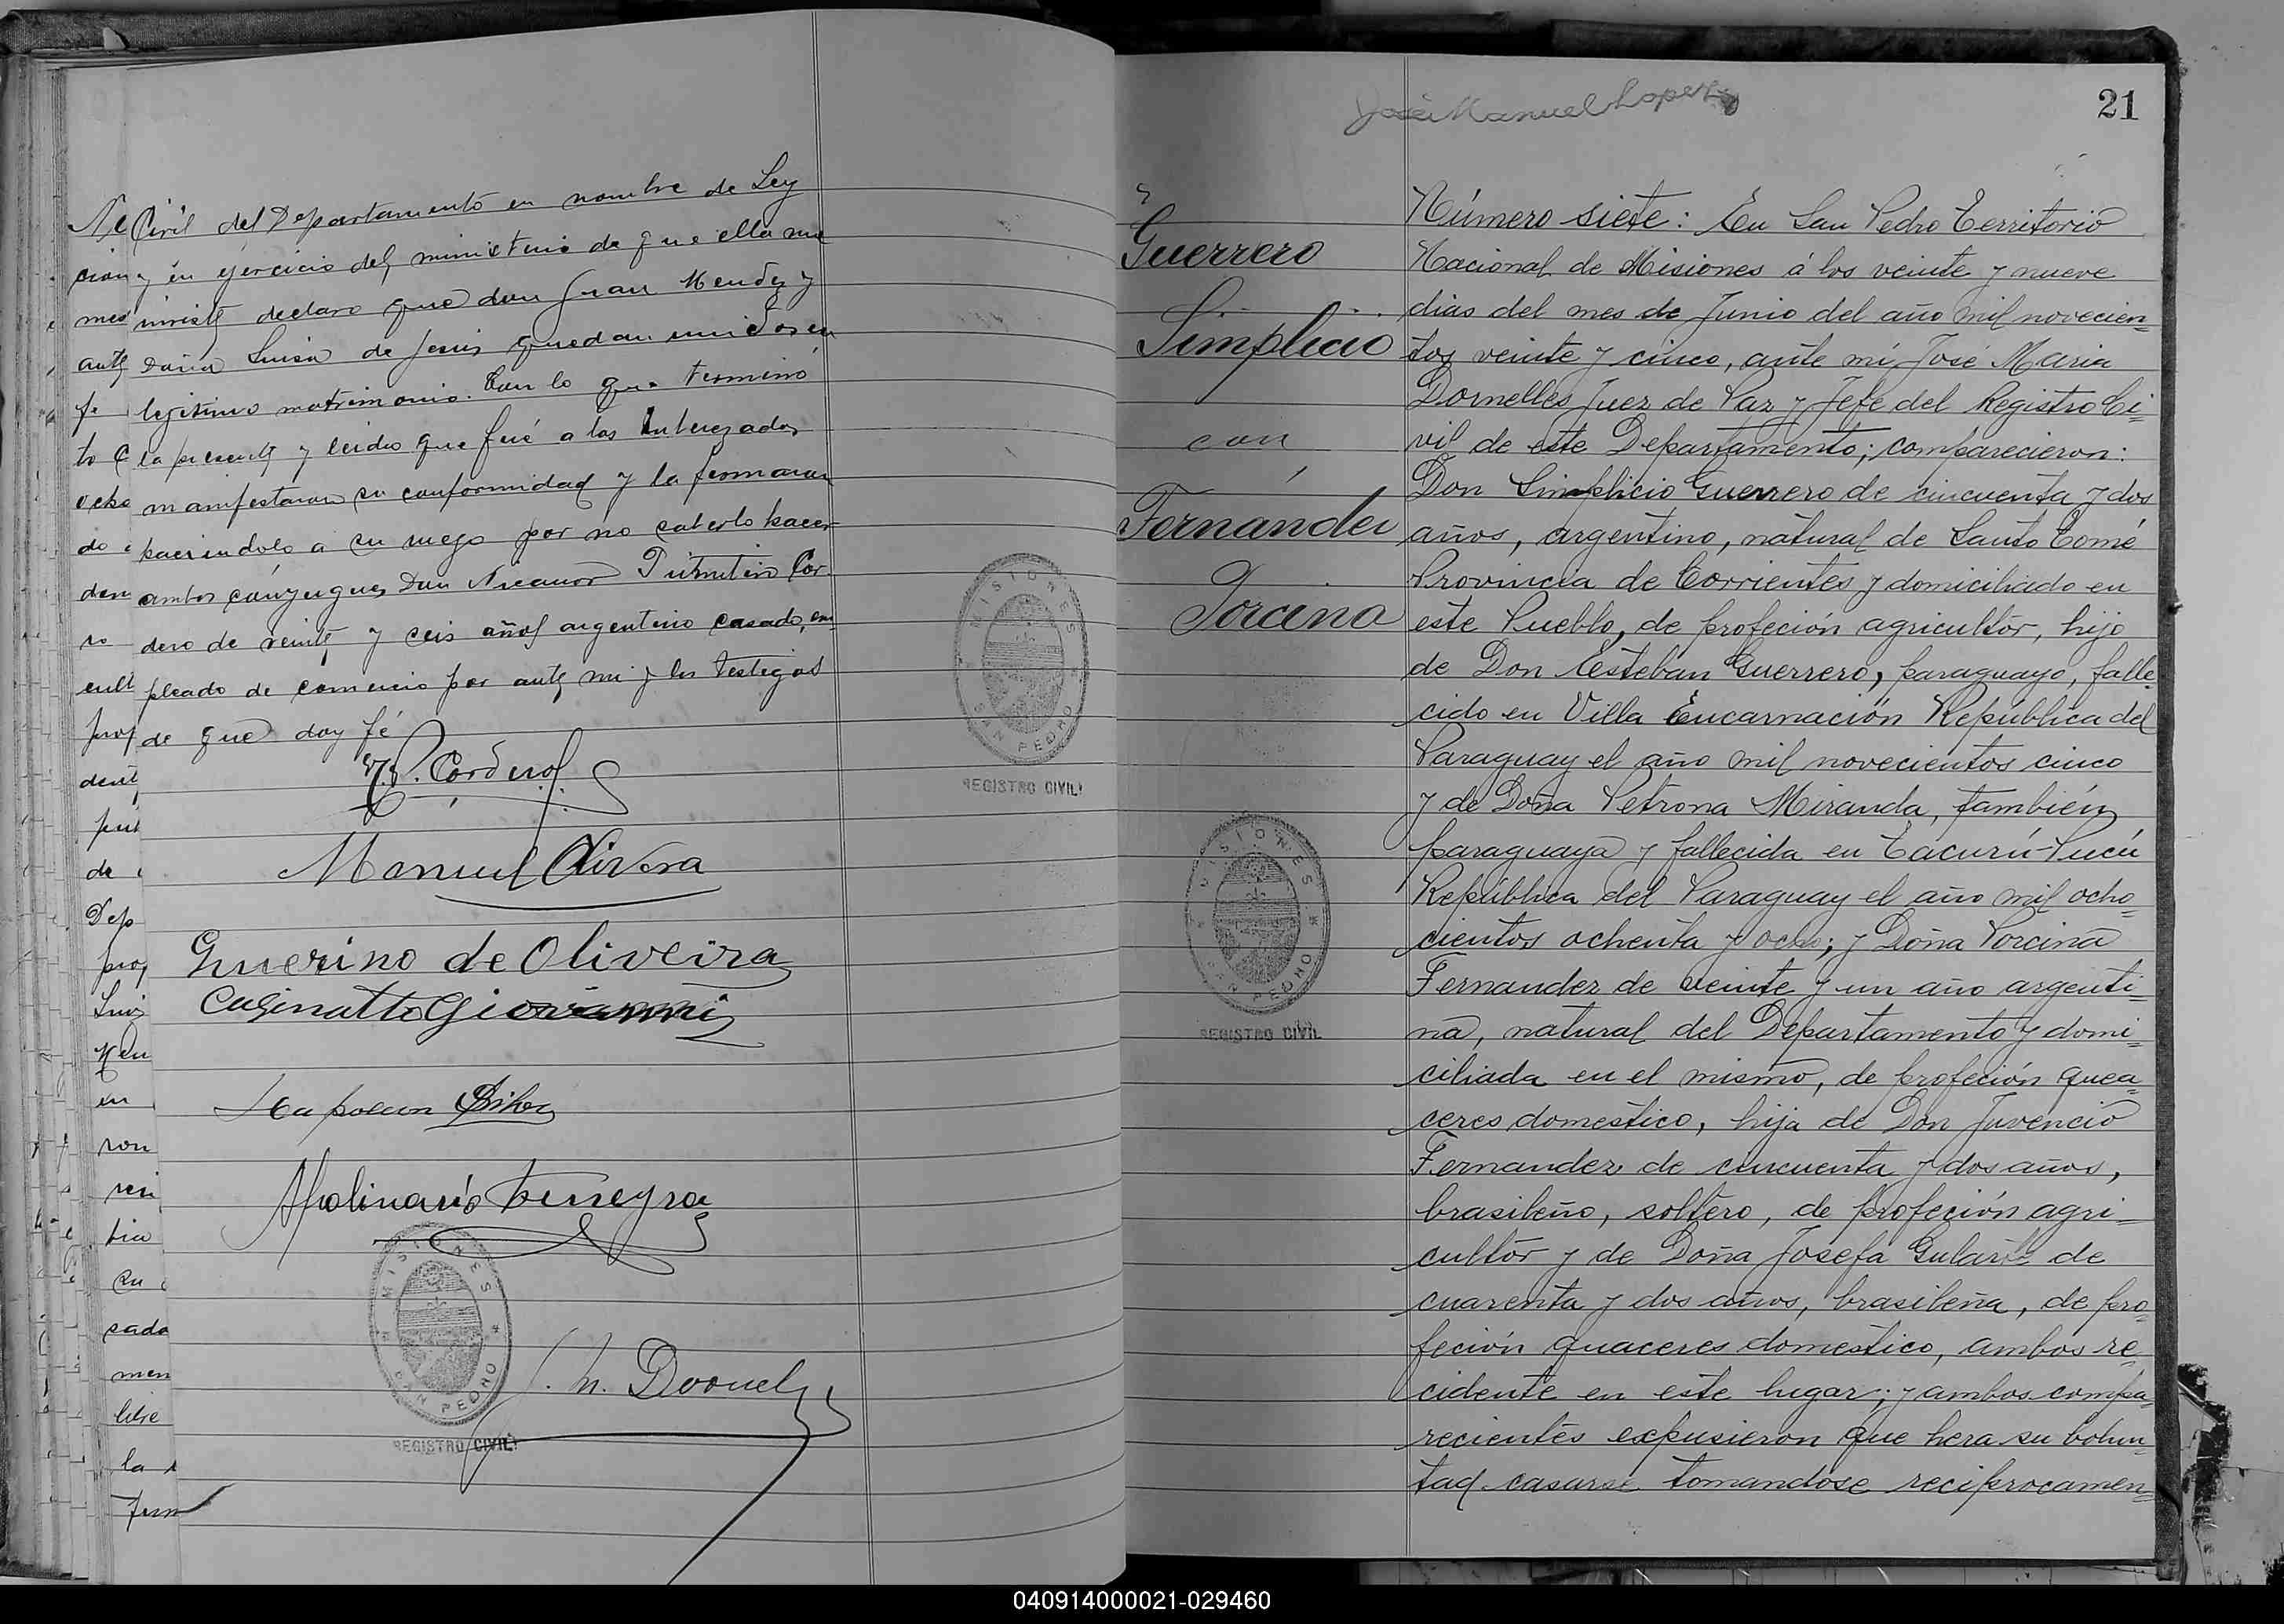 Civil del Departamento en nombre de Ley
y en ejercicio del ministerio de que ella me
inviste declaro que don Juan Mendez y
Doña Luisa de Jesus quedan unidos en
legitimo matrimonio. Con lo que terminó
la presente y leida que fué a los interezados
manifestaron su conformidad y la firmaron
haciendolo a su ruego por no saberlo hacer
ambos cónyugues Don Nicanor Cor-
dero de veinte y seis años argentino casado, em-
pleado de comercio por ante mi y los testigos
de que doy fé
Manuel Olivera
Guerino de Oliveira
Cusinatto Giovanni
Napoleon
Apolinario Ferreyra
MISIONES
SAN PEDRO
REGISTRO CIVIL
MISIONES
SAN PEDRO
REGISTRO CIVIL
José Manuel Lopez
21
Guerrero
Simplicio
con
Fernández
Porcina
MISIONES
SAN PEDRO
REGISTRO CIVIL
Número siete: En San Pedro Territorio
Nacional de Misiones á los veinte y nueve
dias del mes de Junio del año mil novecien=
tos veinte y cinco, ante mí José Maria
Dornelles Juez de Paz y Jefe del Registro Ci=
vil de este Departamento; comparecieron:
Don Simplicio Guerrero de cincuenta y dos
años, argentino, natural de Santo Tomé
Provincia de Corrientes y domiciliado en
este Pueblo, de profeción agricultor, hijo
de Don Esteban Guerrero, paraguayo, falle=
cido en Villa Encarnación República del
Paraguay el año mil novecientos cinco
y de Doña Petrona Miranda, también
paraguaya y fallecida en Tacurú-Pucú
República del Paraguay el año mil ocho=
cientos ochenta y ocho; y Doña Porcina
Fernandez de veinte y un año argenti=
na, natural del Departamento y domi=
ciliada en el mismo, de profeción quea=
ceres domestico, hija de Don Juvencio
Fernandez de cincuenta y dos años,
brasileño, soltero, de profeción agri=
cultor y de Doña Josefa Gularte de
cuarenta y dos años, brasileña, de pro=
feción quaceres domestico, ambos re=
cidente en este lugar; y ambos compa=
recientes expusieron que hera su bolun=
tad casarse tomandose reciprocamen=
040914000021-029460